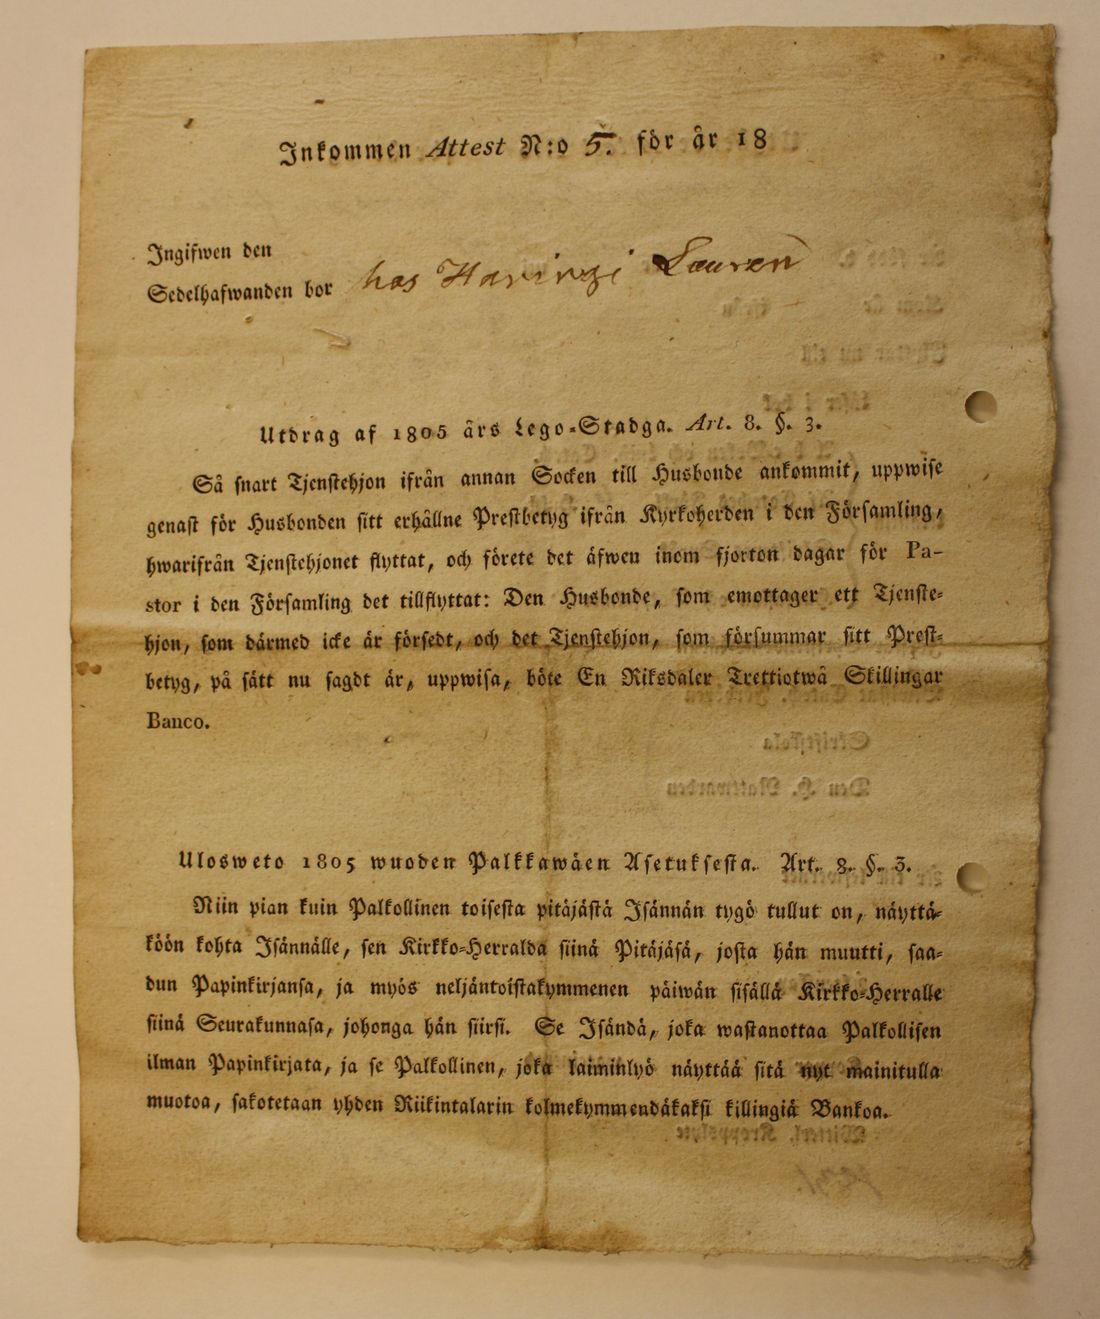 Inkommen Attest N:o 5. för år 18
Ingifwen den
Sedelhafwanden bor hos
Utdrag af 1805 års Lego-Stadga. Art. 8. §. 3.
Så snart Tjenstehjon ifrån annan Socken till Husbonde ankommit, uppwise
genast för Husbonden sitt erhållne Prestbetyg ifrån Kyrkoherden i den Församling,
hwarifrån Tjenstehjonet flyttat, och förete det äfwen inom fjorton dagar för Pa-
stor i den Församling det tillflyttat: Den Husbonde, som emottager ett Tjenste-
hjon, som därmed icke är försedt, och det Tjenstehjon, som försummar sitt Prest-
betyg, på sätt nu sagdt är, uppwisa, böte En Riksdaler Trettiotwå Skillingar
Banco.
Ulosweto 1805 wuoden Palkkawäen Asetuksesta. Art. 8. §. 3.
Niin pian kuin Palkollinen toisesta pitäjästä Isännän tygö tullut on, näyttä-
köön kohta Isännälle, sen Kirkko-Herralda siinä Pitäjäsä, josta hän muutti, saa-
dun Papinkirjansa, ja myös neljäntoistakymmenen päiwän sisällä Kirkko-Herralle
siinä Seurakunnasa, johonga hän siirsi. Se Isändä, joka wastanottaa Palkollisen
ilman Papinkirjata, ja se Palkollinen, joka laiminlyö näyttää sitä nyt mainitulla
muotoa, sakotetaan yhden Riikintalarin kolmekymmendäkaksi killingiä Bankoa.